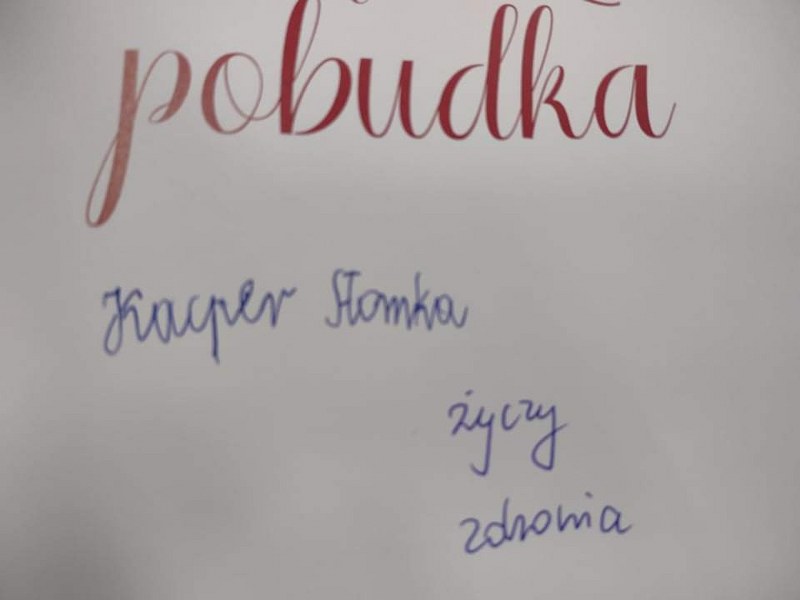 pobudka
Kacper Słomka
życzy
zdrowia